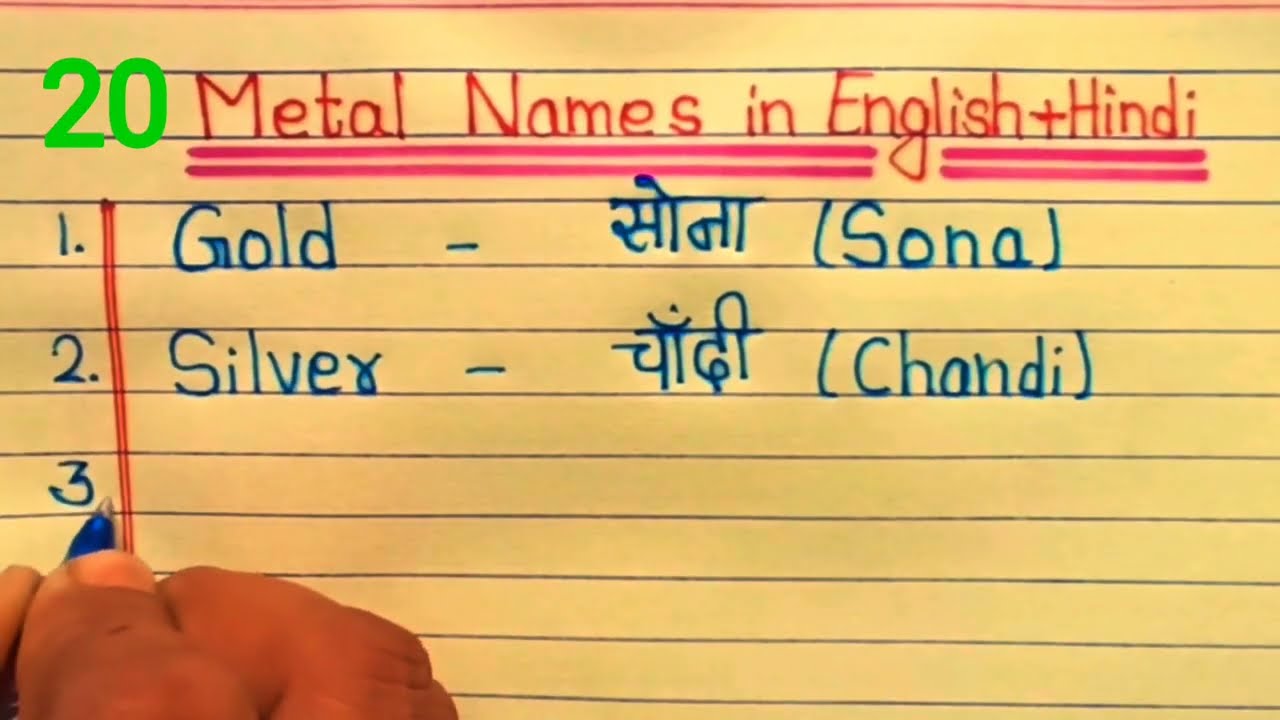 20 Metal Names in English+Hindi
1. Gold - सोना (Sona)
2. Silver - चाँदी (Chandi)
3